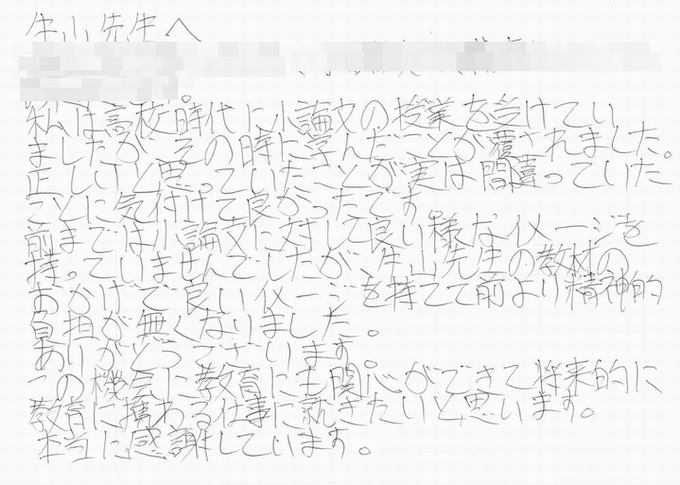 牛山先生へ
私は高校時代に小論文の授業を受けてい
ましたが、その時に学んだことが覆されました。
正しいけと思っていたことが実は間違っていた
ことに気付けて良かったです
前までは小論文に対して良い様なイメージを
持っていませんでしたが、牛山先生の教材の
おかげで良いイメージを持てて前より精神的
負担が無くなりました。
ありがとうございます。
この機会に教育にも関心ができて将来的に
教育に携わる仕事に就きたいと思います。
本当に感謝しています。